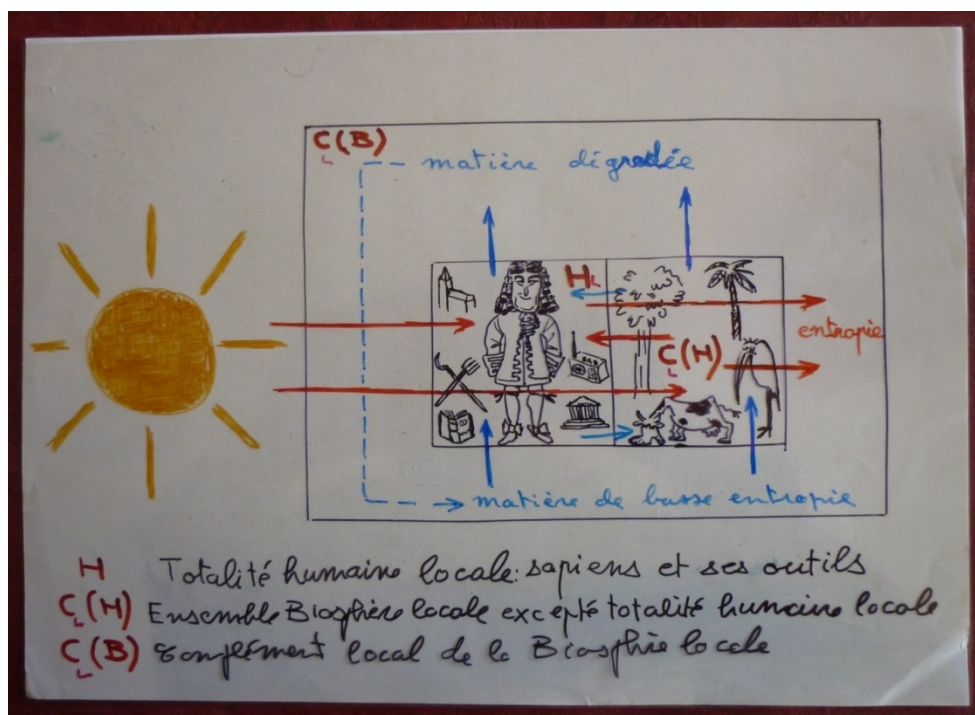 C_L(B)
matière dégradée
H_L
entropie
C_L(H)
matière de basse entropie
H Totalité humaine locale: sapiens et ses outils
C_L(H) Ensemble Biosphère locale excepté totalité humaine locale
C_L(B) Complément local de la Biosphie locale